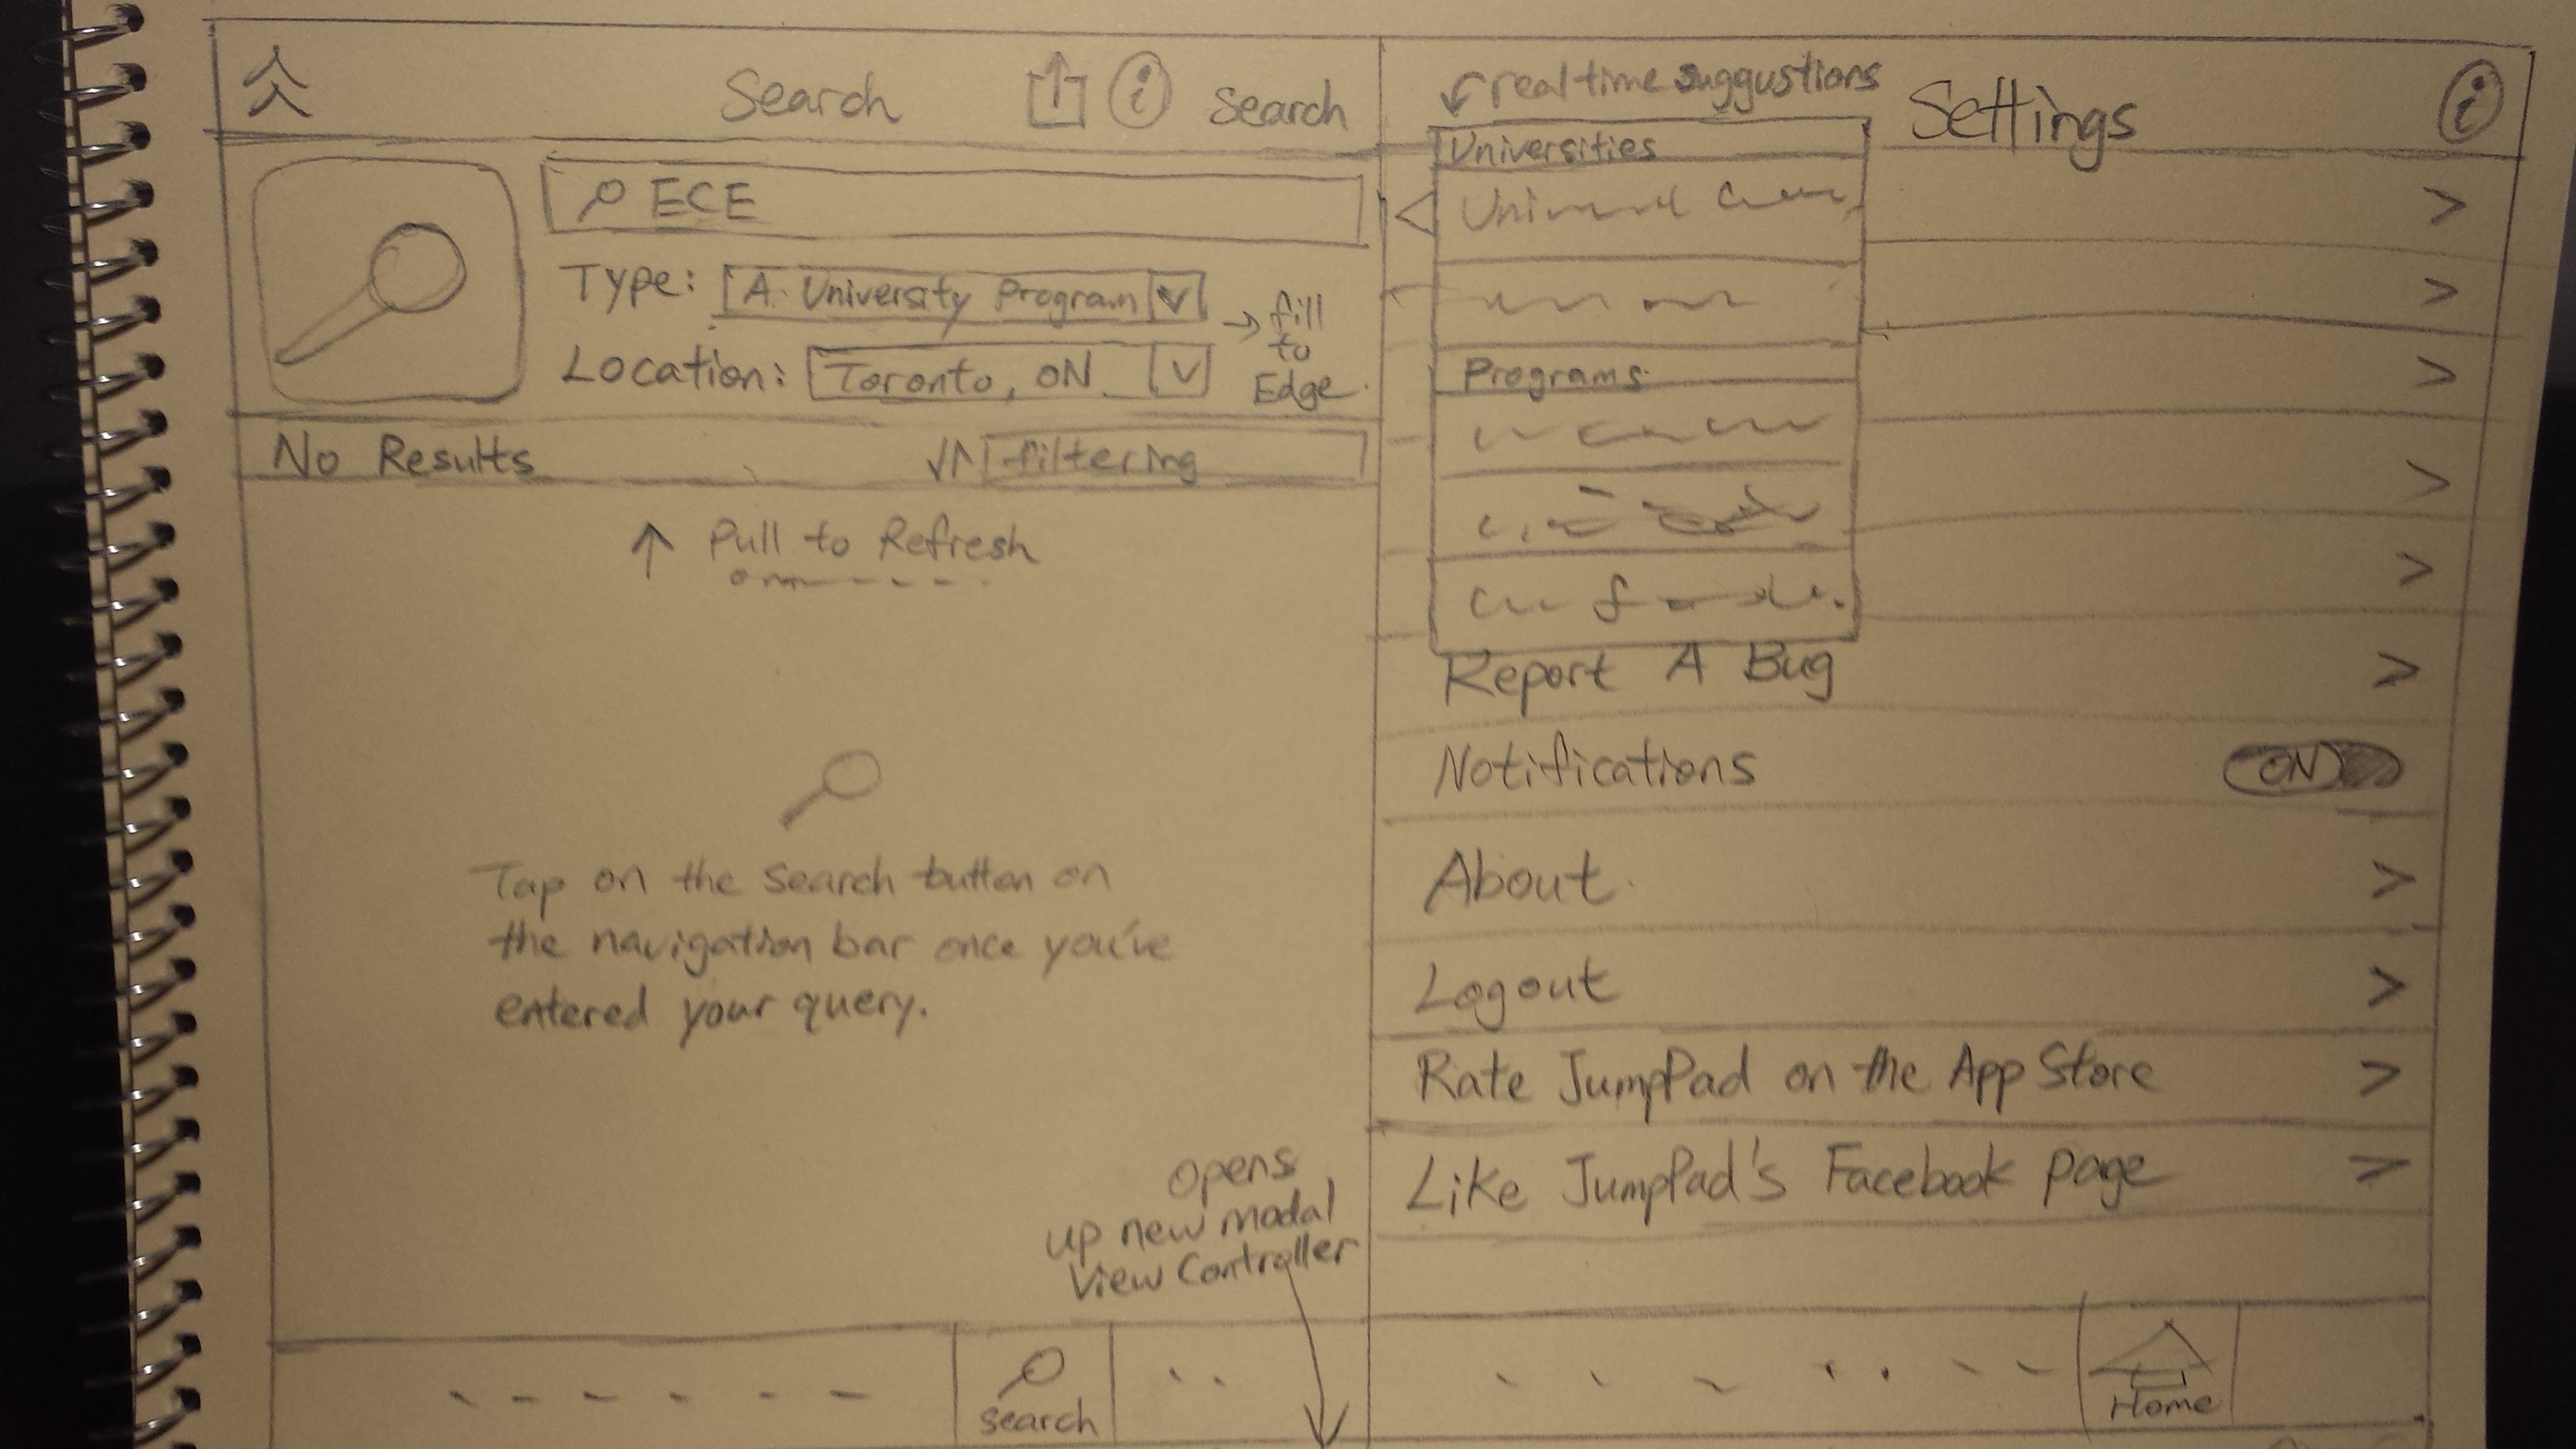 Search
Search
ECE
Type: A University Program
Location: Toronto, ON
→ fill
to
Edge
No Results
filtering
↑ Pull to Refresh
Tap on the search button on
the navigation bar once you've
entered your query.
opens
up new modal
View Controller
search
real time suggustions
Universities
Programs
Settings
i
Report A Bug
Notifications ON
About
Logout
Rate JumpPad on the App Store
Like JumpPad's Facebook page
Home